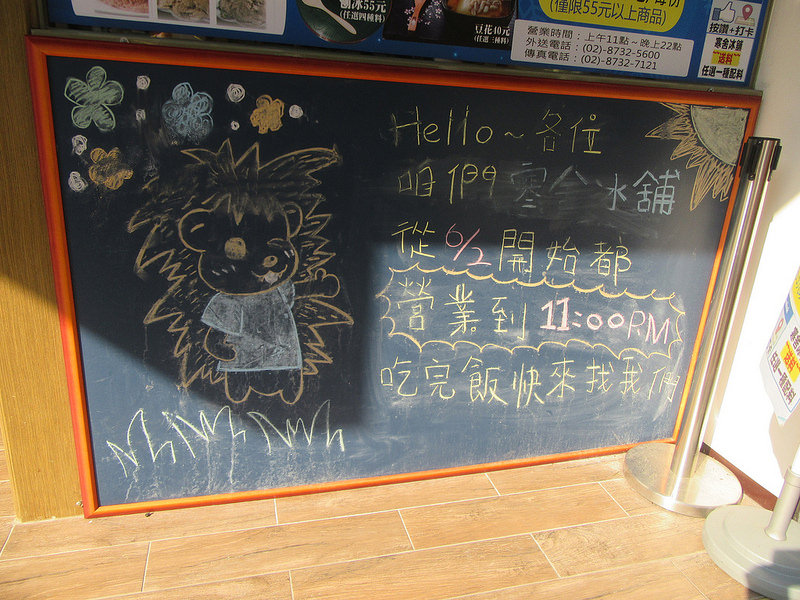 冰55元
(任選四種料)
豆花40元
(任選三種料)
(僅限55元以上商品)
營業時間：上午11點~晚上22點
外送電話：(02)-8732-5600
傳真電話：(02)-8732-7121
按讚+打卡
寒舍冰舖
送料
任選一種配料
Hello~各位
咱們寒舍冰舖
從6/2開始都
營業到11:00PM
吃完飯快來找我們